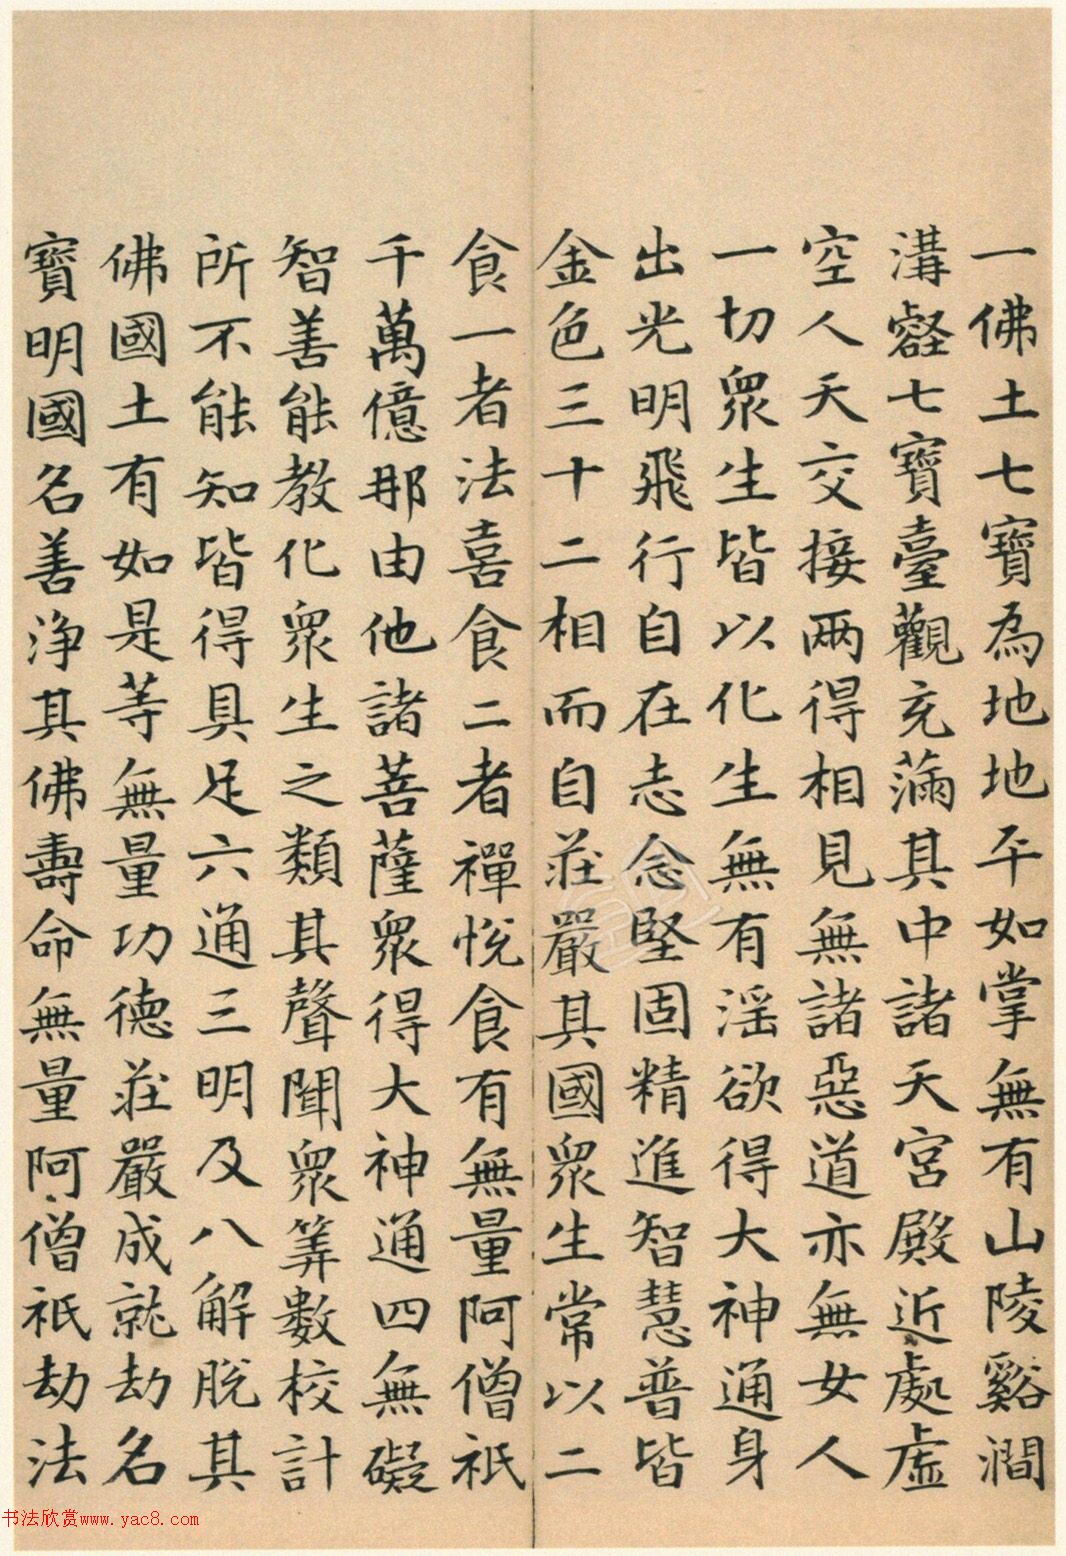 一佛土七寶為地地平如掌無有山陵谿澗
溝壑七寶臺觀充滿其中諸天宮殿近處虛
空人天交接兩得相見無諸惡道亦無女人
一切眾生皆以化生無有淫欲得大神通身
出光明飛行自在志念堅固精進智慧普皆
金色三十二相而自莊嚴其國眾生常以二
食一者法喜食二者禪悅食有無量阿僧祇
千萬億那由他諸菩薩眾得大神通四無礙
智善能教化眾生之類其聲聞眾筭數校計
所不能知皆得具足六通三明及八解脫其
佛國土有如是等無量功德莊嚴成就劫名
寶明國名善淨其佛壽命無量阿僧祇劫法
书法欣赏www.yac8.com